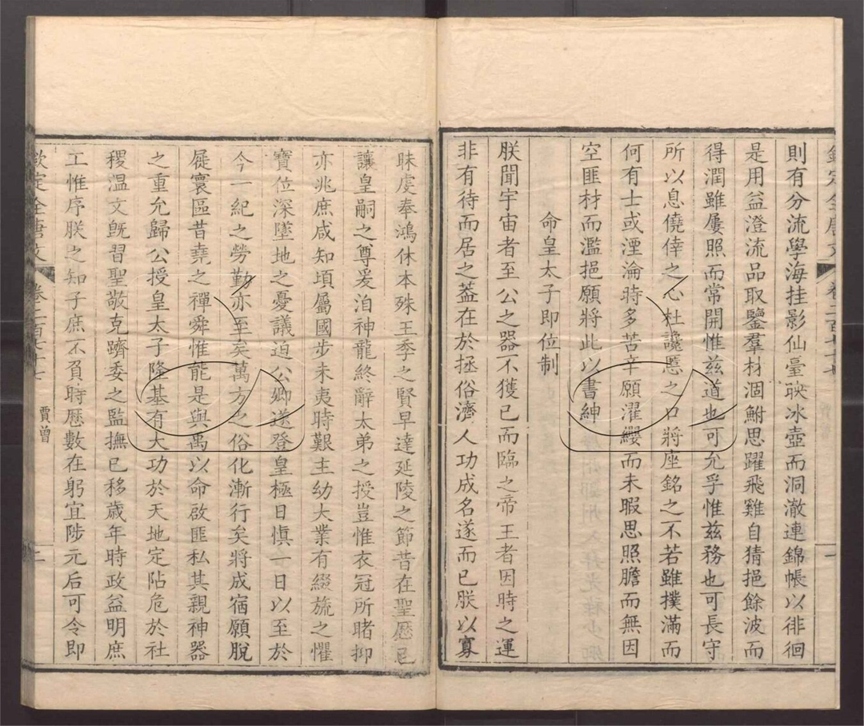 欽定全唐文 卷二百七十七
則有分流學海挂影仙臺暎冰壺而洞澈連錦帳以徘徊
是用益澄流品取鑒羣材涸鮒思躍飛雞自猜挹餘波而
得潤雖屢照而常開惟茲道也可允乎惟茲務也可長守
所以息僥倖之心杜讒慝之口將座銘之不若雖撲滿而
何有士或湮淪時多苦辛願濯纓而未暇思照膽而無因
空匪材而濫挹願將此以書紳
命皇太子即位制
朕聞宇宙者至公之器不獲已而臨之帝王者因時之運
非有待而居之葢在於拯俗濟人功成名遂而已朕以寡
昧虔奉鴻休本殊王季之賢早達延陵之節昔在聖厯已
讓皇嗣之尊爰洎神龍終辭太弟之授豈惟衣冠所睹抑
亦兆庶咸知頃屬國步未夷時艱主幼大業有綴旒之懼
寶位深墜地之憂議迫公卿遂登皇極日慎一日以至於
今一紀之勞勤亦至矣萬方之俗化漸行矣將成宿願脫
屣寰區昔堯之禪舜惟能是與禹以命啟匪私其親神器
之重允歸公授皇太子隆基有大功於天地定阽危於社
稷溫文旣習聖敬克躋委之監撫已移歲年時政益明庶
工惟序朕之知子庶不負時厯數在躬宜陟元后可令即
欽定全唐文 卷二百七十七 賈曾 二